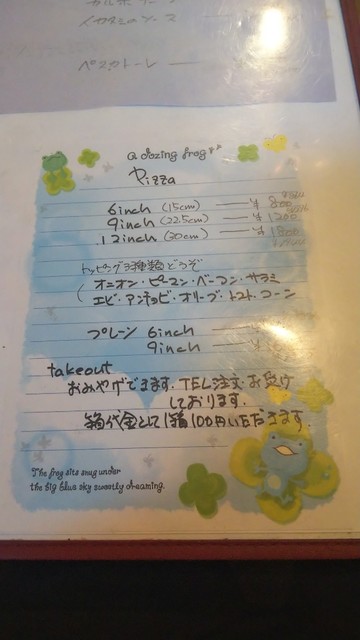 イカスミのソース
ペスカトーレ
a dozing frog
Pizza
6inch (15cm) ―― ¥800
9inch (22.5cm) ―― ¥1200
12inch (30cm) ―― ¥1800
トッピング3種類どうぞ
(オニオン・ピーマン・ベーコン・サラミ
エビ・アンチョビ・オリーブ・トマト・コーン
プレーン 6inch ―― ¥
9inch ―― ¥
takeout
おみやげできます。TEL注文・お受け
しております。
箱代金として1箱100円いただきます。
The frog sits snug under
the big blue sky sweetly dreaming.